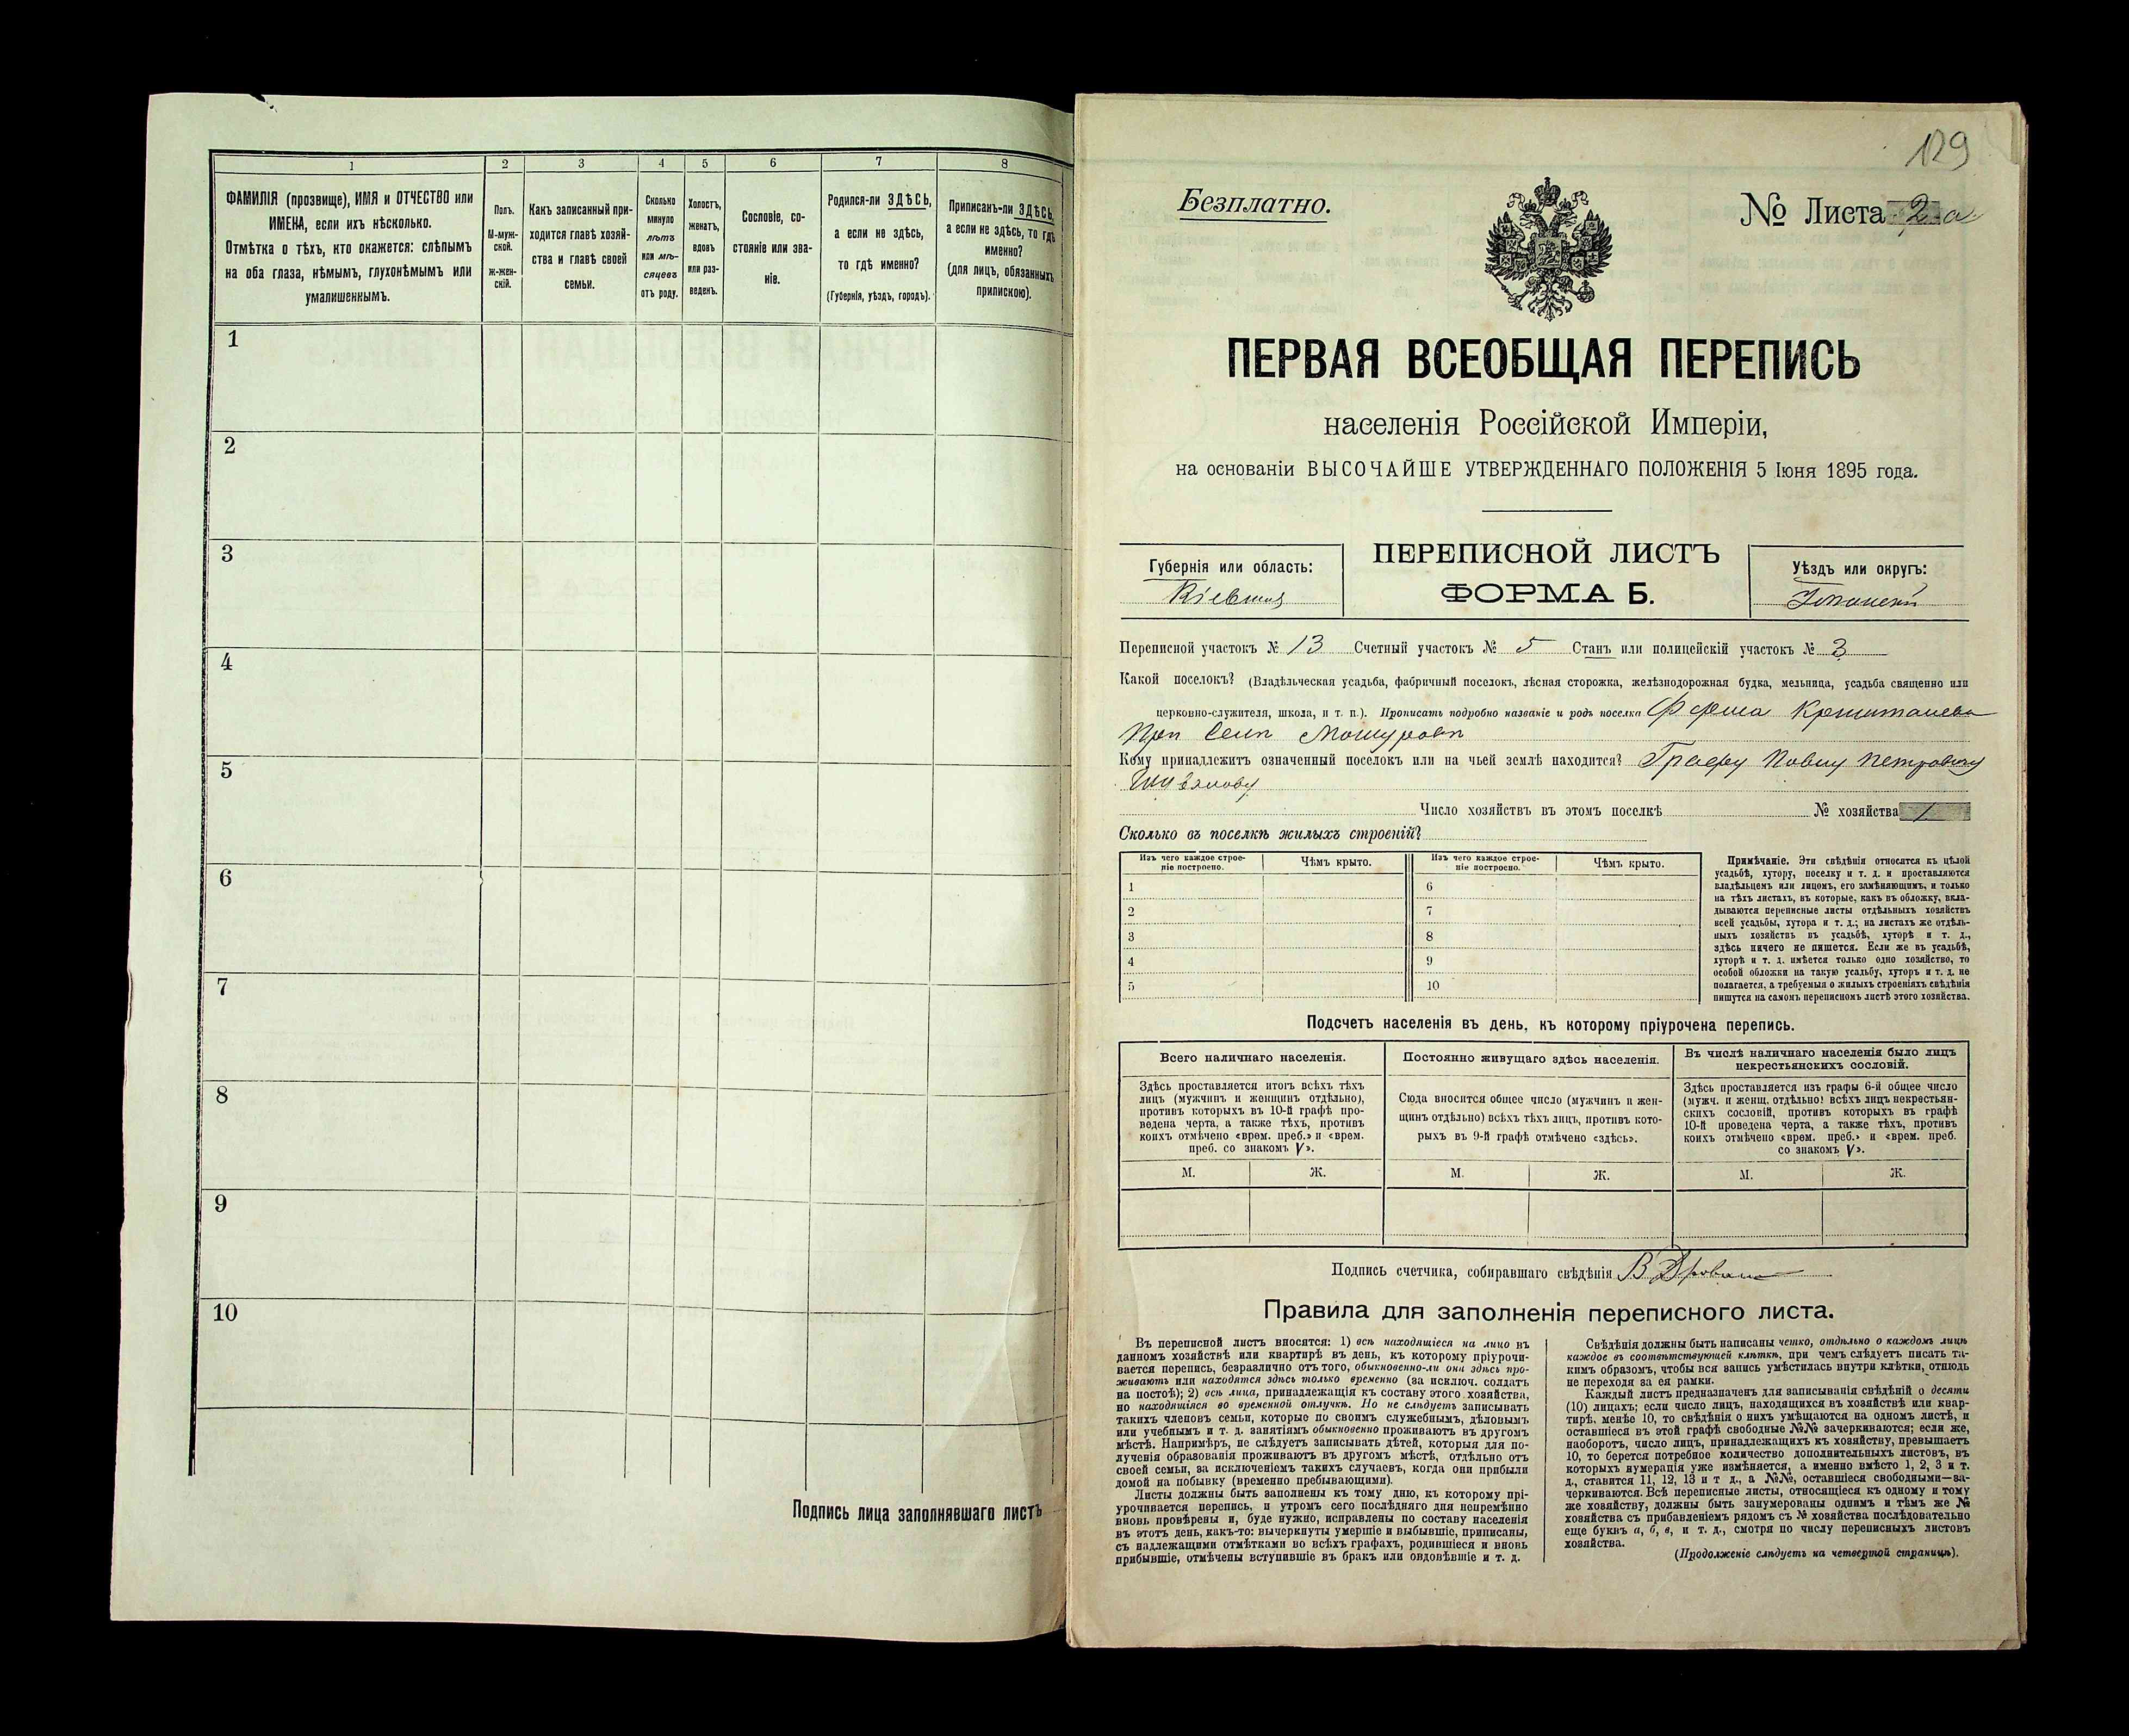 1 2 3 4 5 6 7 8
ФАМИЛІЯ (прозвище), ИМЯ и ОТЧЕСТВО или
ИМЕНА, если ихъ нѣсколько.
Отмѣтка о тѣхъ, кто окажется: слѣпымъ
на оба глаза, нѣмымъ, глухонѣмымъ или
умалишеннымъ.
Полъ.
М-муж-
ской.
ж-жен-
скій.
Какъ записанный при-
ходится главѣ хозяй-
ства и главѣ своей
семьи.
Сколько
минуло
лѣтъ
или мѣ-
сяцевъ
отъ роду.
Холостъ,
женатъ,
вдовъ
или раз-
веденъ.
Сословіе, со-
стояніе или зва-
ніе.
Родился-ли ЗДѢСЬ,
а если не здѣсь,
то гдѣ именно?
(Губернія, уѣздъ, городъ).
Приписанъ-ли ЗДѢСЬ,
а если не здѣсь, то гдѣ
именно?
(для лицъ, обязанныхъ
припискою).
1
2
3
4
5
6
7
8
9
10
Подпись лица заполнявшаго листъ
129
Безплатно.
№ Листа 2 а
ПЕРВАЯ ВСЕОБЩАЯ ПЕРЕПИСЬ
населенія Россійской Имперіи,
на основаніи ВЫСОЧАЙШЕ УТВЕРЖДЕННАГО ПОЛОЖЕНІЯ 5 Іюня 1895 года.
Губернія или область:
Кіевская
ПЕРЕПИСНОЙ ЛИСТЪ
ФОРМА Б.
Уѣздъ или округъ:
Уманскій
Переписной участокъ № 13 Счетный участокъ № 5 Станъ или полицейскій участокъ № 3
Какой поселокъ? (Владѣльческая усадьба, фабричный поселокъ, лѣсная сторожка, желѣзнодорожная будка, мельница, усадьба священно или
церковно-служителя, школа, и т. п.). Прописать подробно названіе и родъ поселка Ферма
При селѣ Машуровѣ
Кому принадлежитъ означенный поселокъ или на чьей землѣ находится? Графу Павлу Петровичу
Шувалову
Число хозяйствъ въ этомъ поселкѣ № хозяйства 1
Сколько въ поселкѣ жилыхъ строеній?
Изъ чего каждое строе-
ніе построено.
Чѣмъ крыто.
Изъ чего каждое строе-
ніе построено.
Чѣмъ крыто.
1 6
2 7
3 8
4 9
5 10
Примѣчаніе. Эти свѣдѣнія относятся къ цѣлой
усадьбѣ, хутору, поселку и т. д. и проставляются
владѣльцемъ или лицомъ, его замѣняющимъ, и только
на тѣхъ листахъ, въ которые, какъ въ обложку, вкла-
дываются переписные листы отдѣльныхъ хозяйствъ
всей усадьбы, хутора и т. д.; на листахъ же отдѣль-
ныхъ хозяйствъ въ усадьбѣ, хуторѣ и т. д.,
здѣсь ничего не пишется. Если же въ усадьбѣ,
хуторѣ и т. д. имѣется только одно хозяйство, то
особой обложки на такую усадьбу, хуторъ и т. д. не
полагается, а требуемыя о жилыхъ строеніяхъ свѣдѣнія
пишутся на самомъ переписномъ листѣ этого хозяйства.
Подсчетъ населенія въ день, къ которому пріурочена перепись.
Всего наличнаго населенія.
Здѣсь проставляется итогъ всѣхъ тѣхъ
лицъ (мужчинъ и женщинъ отдѣльно),
противъ которыхъ въ 10-й графѣ про-
ведена черта, а также тѣхъ, противъ
коихъ отмѣчено «врем. преб.» и «врем.
преб. со знакомъ V».
М. Ж.
Постоянно живущаго здѣсь населенія.
Сюда вносится общее число (мужчинъ и жен-
щинъ отдѣльно) всѣхъ тѣхъ лицъ, противъ кото-
рыхъ въ 9-й графѣ отмѣчено «здѣсь».
М. Ж.
Въ числѣ наличнаго населенія было лицъ
некрестьянскихъ сословій.
Здѣсь проставляется изъ графы 6-й общее число
(мужч. и женщ. отдѣльно) всѣхъ лицъ некрестьян-
скихъ сословій, противъ которыхъ въ графѣ
10-й проведена черта, а также тѣхъ, противъ
коихъ отмѣчено «врем. преб.» и «врем. преб.
со знакомъ V».
М. Ж.
Подпись счетчика, собиравшаго свѣдѣнія В
Правила для заполненія переписного листа.
Въ переписной листъ вносятся: 1) всѣ находящіеся на лицо въ
данномъ хозяйствѣ или квартирѣ въ день, къ которому пріурочи-
вается перепись, безразлично отъ того, обыкновенно-ли они здѣсь про-
живаютъ или находятся здѣсь только временно (за исключ. солдатъ
на постоѣ); 2) всѣ лица, принадлежащія къ составу этого хозяйства,
но находящіяся во временной отлучкѣ. Но не слѣдуетъ записывать
такихъ членовъ семьи, которые по своимъ служебнымъ, дѣловымъ
или учебнымъ и т. д. занятіямъ обыкновенно проживаютъ въ другомъ
мѣстѣ. Напримѣръ, не слѣдуетъ записывать дѣтей, которыя для по-
лученія образованія проживаютъ въ другомъ мѣстѣ, отдѣльно отъ
своей семьи, за исключеніемъ такихъ случаевъ, когда они прибыли
домой на побывку (временно пребывающими).
Листы должны быть заполнены къ тому дню, къ которому прі-
урочивается перепись, и утромъ сего послѣдняго дня непремѣнно
вновь провѣрены и, буде нужно, исправлены по составу населенія
въ этотъ день, какъ-то: вычеркнуты умершіе и выбывшіе, приписаны,
съ надлежащими отмѣтками во всѣхъ графахъ, родившіеся и вновь
прибывшіе, отмѣчены вступившіе въ бракъ или овдовѣвшіе и т. д.
Свѣдѣнія должны быть написаны четко, отдѣльно о каждомъ лицѣ
каждое въ соотвѣтствующей клѣткѣ, при чемъ слѣдуетъ писать та-
кимъ образомъ, чтобы вся запись умѣстилась внутри клѣтки, отнюдь
не переходя за ея рамки.
Каждый листъ предназначенъ для записыванія свѣдѣній о десяти
(10) лицахъ; если число лицъ, находящихся въ хозяйствѣ или квар-
тирѣ, менѣе 10, то свѣдѣнія о нихъ умѣщаются на одномъ листѣ, и
оставшіеся въ этой графѣ свободные №№ зачеркиваются; если же,
наоборотъ, число лицъ, принадлежащихъ къ хозяйству, превышаетъ
10, то берется потребное количество дополнительныхъ листовъ, въ
которыхъ нумерація уже измѣняется, а именно вмѣсто 1, 2, 3 и т.
д., ставится 11, 12, 13 и т д., а №№, оставшіеся свободными—за-
черкиваются. Всѣ переписные листы, относящіеся къ одному и тому
же хозяйству, должны быть занумерованы однимъ и тѣмъ же №
хозяйства съ прибавленіемъ рядомъ съ № хозяйства послѣдовательно
еще буквъ а, б, в, и т. д., смотря по числу переписныхъ листовъ
хозяйства.
(Продолженіе слѣдуетъ на четвертой страницѣ).